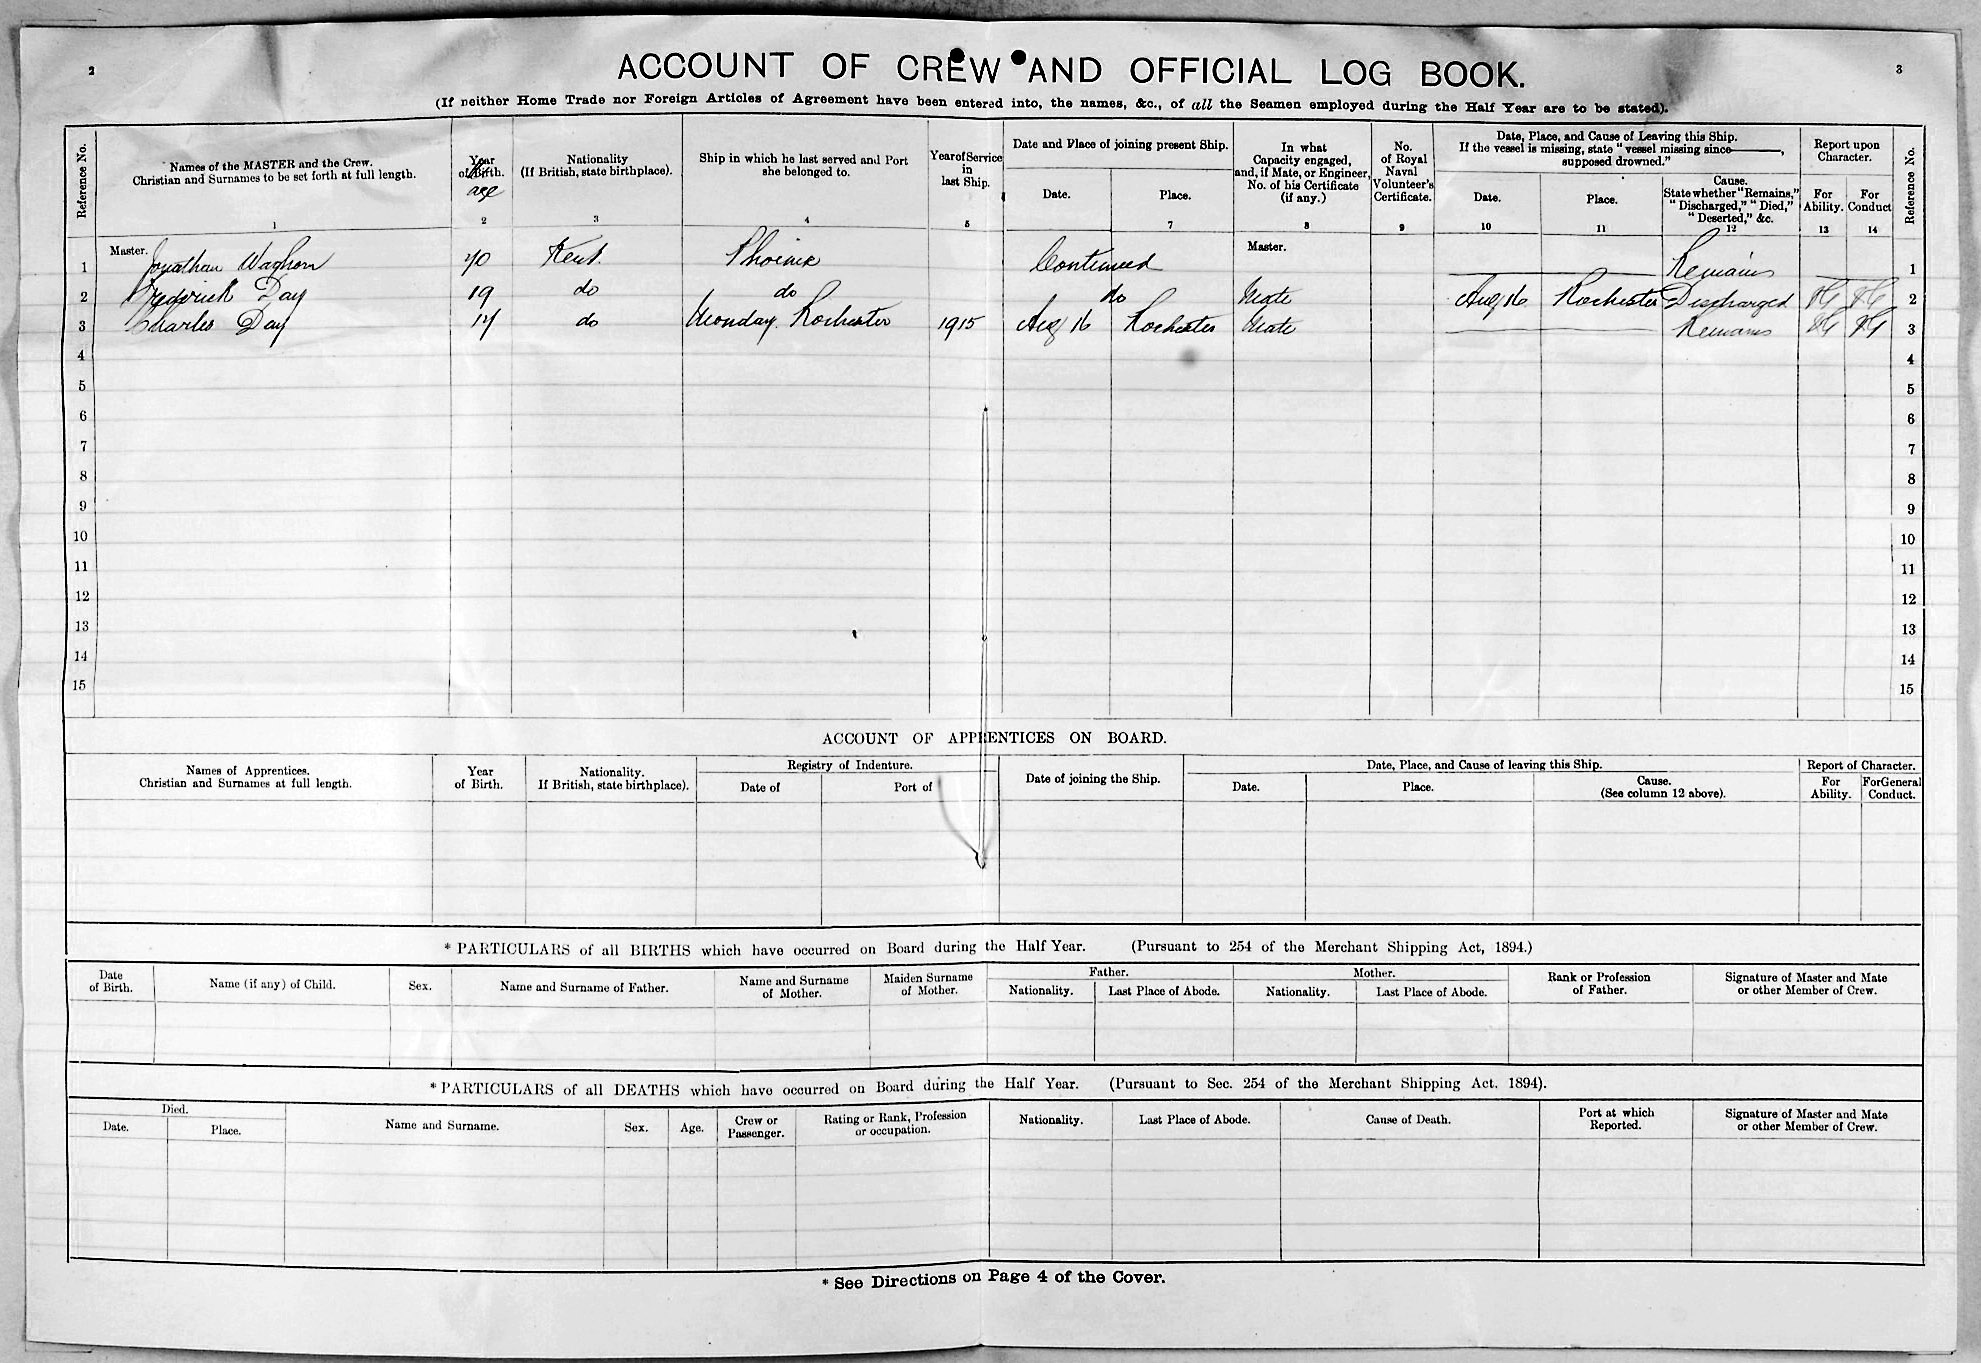 2
3
ACCOUNT OF CREW AND OFFICIAL LOG BOOK.
(If neither Home Trade nor Foreign Articles of Agreement have been entered into, the names, &c., of all the Seamen employed during the Half Year are to be stated).
Reference No.
Names of the MASTER and the Crew.
Christian and Surnames to be set forth at full length.
1
Year
of Birth.
age
2
Nationality
(If British, state birthplace).
3
Ship in which he last served and Port
she belonged to.
4
Year of Service
in
last Ship.
5
Date and Place of joining present Ship.
Date.
Place.
7
In what
Capacity engaged,
and, if Mate, or Engineer,
No. of his Certificate
(if any.)
8
No.
of Royal
Naval
Volunteer's
Certificate.
9
Date, Place, and Cause of Leaving this Ship.
If the vessel is missing, state "vessel missing since———,
supposed drowned."
Date.
10
Place.
11
Cause.
State whether "Remains,"
"Discharged," "Died,"
"Deserted," &c.
12
Report upon
Character.
For
Ability.
13
For
Conduct
14
Reference No.
1 Master. Jonathan Waghorn 40 Kent Phoinix Continued Master. Remains 1
2 Fredrick Day 19 do do do Mate Aug 16 Rochester Discharged VG VG 2
3 Charles Day 14 do Monday Rochester 1915 Aug 16 Rochester Mate Remains VG VG 3
4 4
5 5
6 6
7 7
8 8
9 9
10 10
11 11
12 12
13 13
14 14
15 15
ACCOUNT OF APPRENTICES ON BOARD.
Names of Apprentices.
Christian and Surnames at full length.
Year
of Birth.
Nationality.
If British, state birthplace).
Registry of Indenture.
Date of
Port of
Date of joining the Ship.
Date, Place, and Cause of leaving this Ship.
Date.
Place.
Cause.
(See column 12 above).
Report of Character.
For
Ability.
For General
Conduct.
*PARTICULARS of all BIRTHS which have occurred on Board during the Half Year. (Pursuant to 254 of the Merchant Shipping Act, 1894.)
Date
of Birth.
Name (if any) of Child.
Sex.
Name and Surname of Father.
Name and Surname
of Mother.
Maiden Surname
of Mother.
Father.
Nationality.
Last Place of Abode.
Mother.
Nationality.
Last Place of Abode.
Rank or Profession
of Father.
Signature of Master and Mate
or other Member of Crew.
*PARTICULARS of all DEATHS which have occurred on Board during the Half Year. (Pursuant to Sec. 254 of the Merchant Shipping Act. 1894).
Died.
Date.
Place.
Name and Surname.
Sex.
Age.
Crew or
Passenger.
Rating or Rank, Profession
or occupation.
Nationality.
Last Place of Abode.
Cause of Death.
Port at which
Reported.
Signature of Master and Mate
or other Member of Crew.
* See Directions on Page 4 of the Cover.